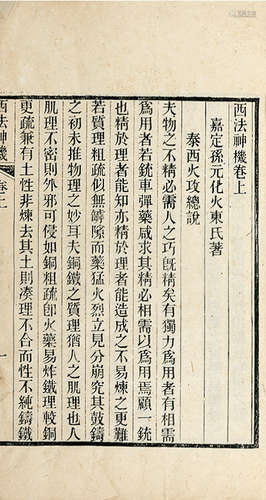 西法神機卷上
嘉定孫元化火東氏著
泰西火攻總說
夫物之不精必需人之巧旣精矣有獨力爲用者有相需
爲用者若銃車彈藥咸求其精必相需以爲用焉顧一銃
也精於理者能知亦精於理者能造成之不易煉之更難
若質理粗疏似無罅隙而藥猛火烈立見分崩究其鼓鑄
之初未推物理之妙耳夫銅鐵之質理猶人之肌理也人
肌理不密則外邪可侵如銅粗疏卽火藥易炸鐵理較銅
更疏兼有土性非煉去其土則湊理不合而性不純鑄鐵
西法神機 卷上 一